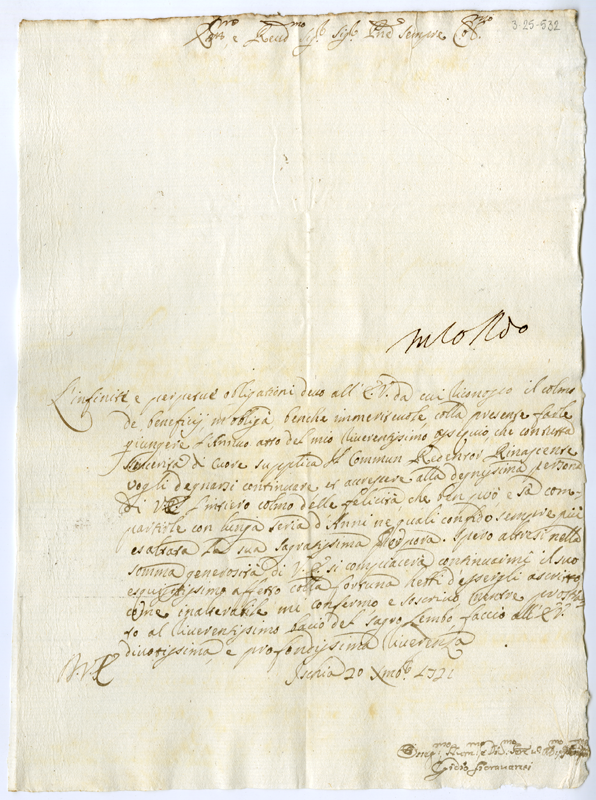 e Reud.mo Sig.r Sig.r sempre
3-25-532
L'infinite, e perpetue obligationi devo all' E.V. da cui riconosco il colmo
de beneficij m'obliga, benche immeritevole colla presente farle
giungere l'umil atto del mio riverentissimo ossequio, che con tutta
di Cuore supplica il Commun Redentor Rinascente
vogli degnarsi continuare et accrescere alla degnissima persona
di V.E. l'intiero colmo delle felicità che ben può e sà com-
partirle con lunga seria d'Anni ne quali confido sempre più
la sua sagratissima Porpora. Spero altresi nella
somma generosità di V.E. si compiacerà continuarmi il suo
affetto colla fortuna d'essergli ascritto
come inalterabile mi confermo e
to al riverentissimo bacio del sagro lembo faccio all' E.V.
divotissima, e profondissima riverenza
D.V.E.
Ischia 20 Xmbre 1721